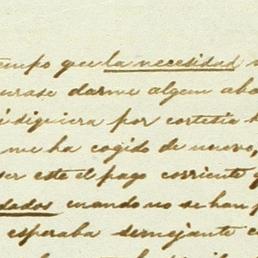 tiempo que la necesidad
darme algun
dijera por cortesia
me ha cogido de nuevo,
ser este el pago corriente
dados cuando no se han
esperaba semejante